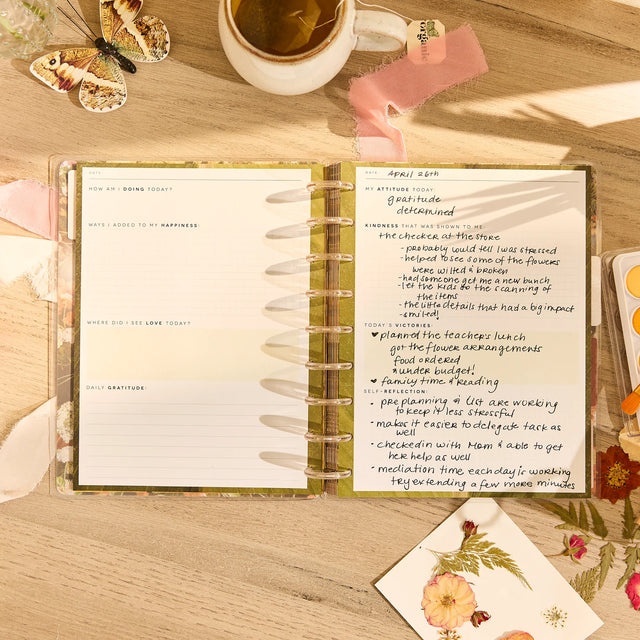 organic
DATE:
HOW AM I DOING TODAY?
WAYS I ADDED TO MY HAPPINESS:
WHERE DID I SEE LOVE TODAY?
DAILY GRATITUDE:
DATE: APRIL 26th
MY ATTITUDE TODAY:
gratitude
determined
KINDNESS THAT WAS SHOWN TO ME:
the checker at the store
- probably could tell I was stressed
- helped to see some of the flowers
were wilted & broken
- had someone get me a new bunch
- let the kids do the scanning of
the items
- the little details that had a big impact
- smiled!
TODAY'S VICTORIES:
♥ planned the teacher's lunch
got the flower arrangements
food ordered
* under budget!
♥ family time & reading
SELF-REFLECTION:
• preplanning & list are working
to keep it less stressful
• makes it easier to delegate task as
well
• checked in with Mom & able to get
her help as well
• mediation time each day is working
try extending a few more minutes